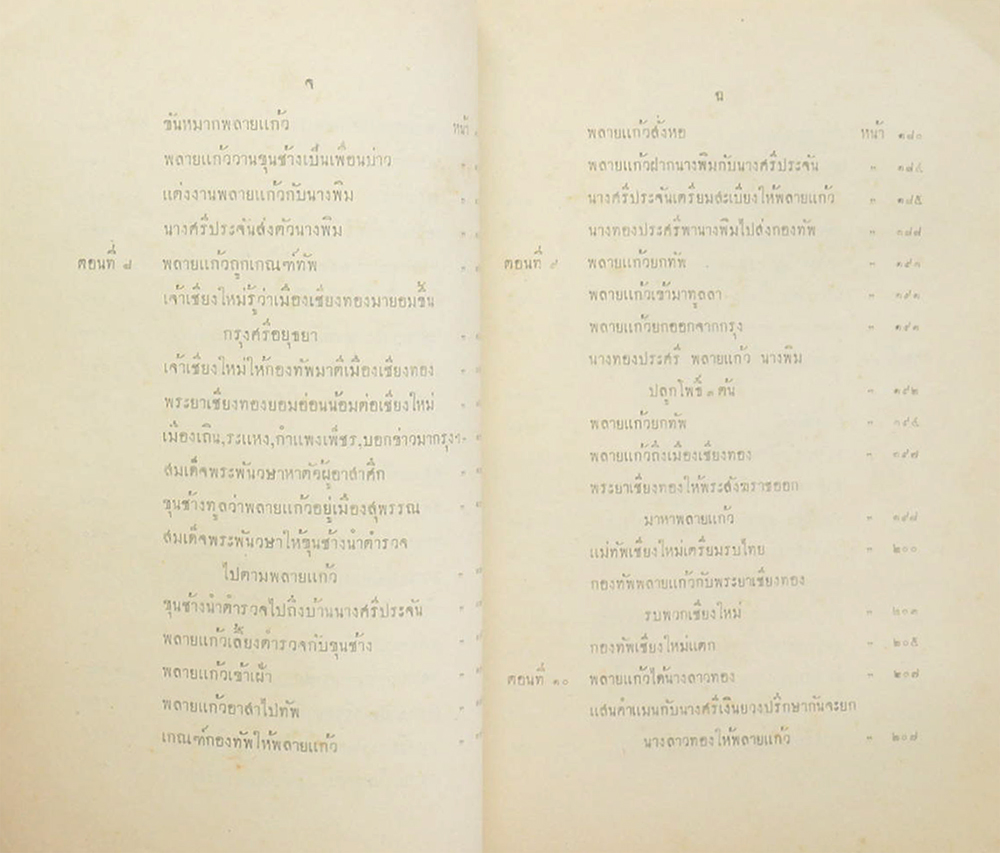 จ
ขันหมากพลายแก้ว หน้า
พลายแก้ววานขุนช้างเป็นเพื่อนบ่าว "
แต่งงานพลายแก้วกับนางพิม "
นางศรีประจันส่งตัวนางพิม "
ตอนที่ ๘ พลายแก้วถูกเกณฑ์ทัพ "
เจ้าเชียงใหม่รู้ว่าเมืองเชียงทองมายอมขึ้น
กรุงศรีอยุธยา "
เจ้าเชียงใหม่ให้กองทัพมาตีเมืองเชียงทอง "
พระยาเชียงทองยอมอ่อนน้อมต่อเชียงใหม่ "
เมืองเถิน,ระแหง,กำแพงเพ็ชร,บอกข่าวมากรุงฯ
สมเด็จพระพันวษาหาตัวผู้อาสาศึก "
ขุนช้างทูลว่าพลายแก้วอยู่เมืองสุพรรณ "
สมเด็จพระพันวษาให้ขุนช้างนำตำรวจ
ไปตามพลายแก้ว "
ขุนช้างนำตำรวจไปถึงบ้านนางศรีประจัน "
พลายแก้วเลี้ยงตำรวจกับขุนช้าง "
พลายแก้วเข้าเฝ้า "
พลายแก้วอาสาไปทัพ "
เกณฑ์กองทัพให้พลายแก้ว "
ฉ
พลายแก้วสั่งหอ หน้า ๑๘๐
พลายแก้วฝากนางพิมกับนางศรีประจัน "
นางศรีประจันเตรียมสะเบียงให้พลายแก้ว " ๑๘๕
นางทองประศรีพานางพิมไปส่งกองทัพ " ๑๘๗
ตอนที่ ๙ พลายแก้วยกทัพ " ๑๙๑
พลายแก้วเข้ามาทูลลา " ๑๙๑
พลายแก้วยกออกจากกรุง " ๑๙๑
นางทองประศรี พลายแก้ว นางพิม
ปลูกโพธิ์ ๓ ต้น " ๑๙๒
พลายแก้วยกทัพ "
พลายแก้วถึงเมืองเชียงทอง " ๑๙๗
พระยาเชียงทองให้พระสังฆราชออก
มาหาพลายแก้ว " ๑๙๗
แม่ทัพเชียงใหม่เตรียมรบไทย " ๒๐๐
กองทัพพลายแก้วกับพระยาเชียงทอง
รบพวกเชียงใหม่ "
กองทัพเชียงใหม่แตก " ๒๐๕
ตอนที่ ๑๐ พลายแก้วได้นางลาวทอง " ๒๐๗
แสนคำแมนกับนางศรีเงินยวงปรึกษากันจะยก
นางลาวทองให้พลายแก้ว " ๒๐๗